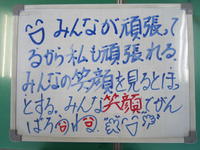 みんなが頑張って
るから私も頑張れる
みんなの笑顔を見るとほっ
とする。みんな笑顔でがん
ばろうね。